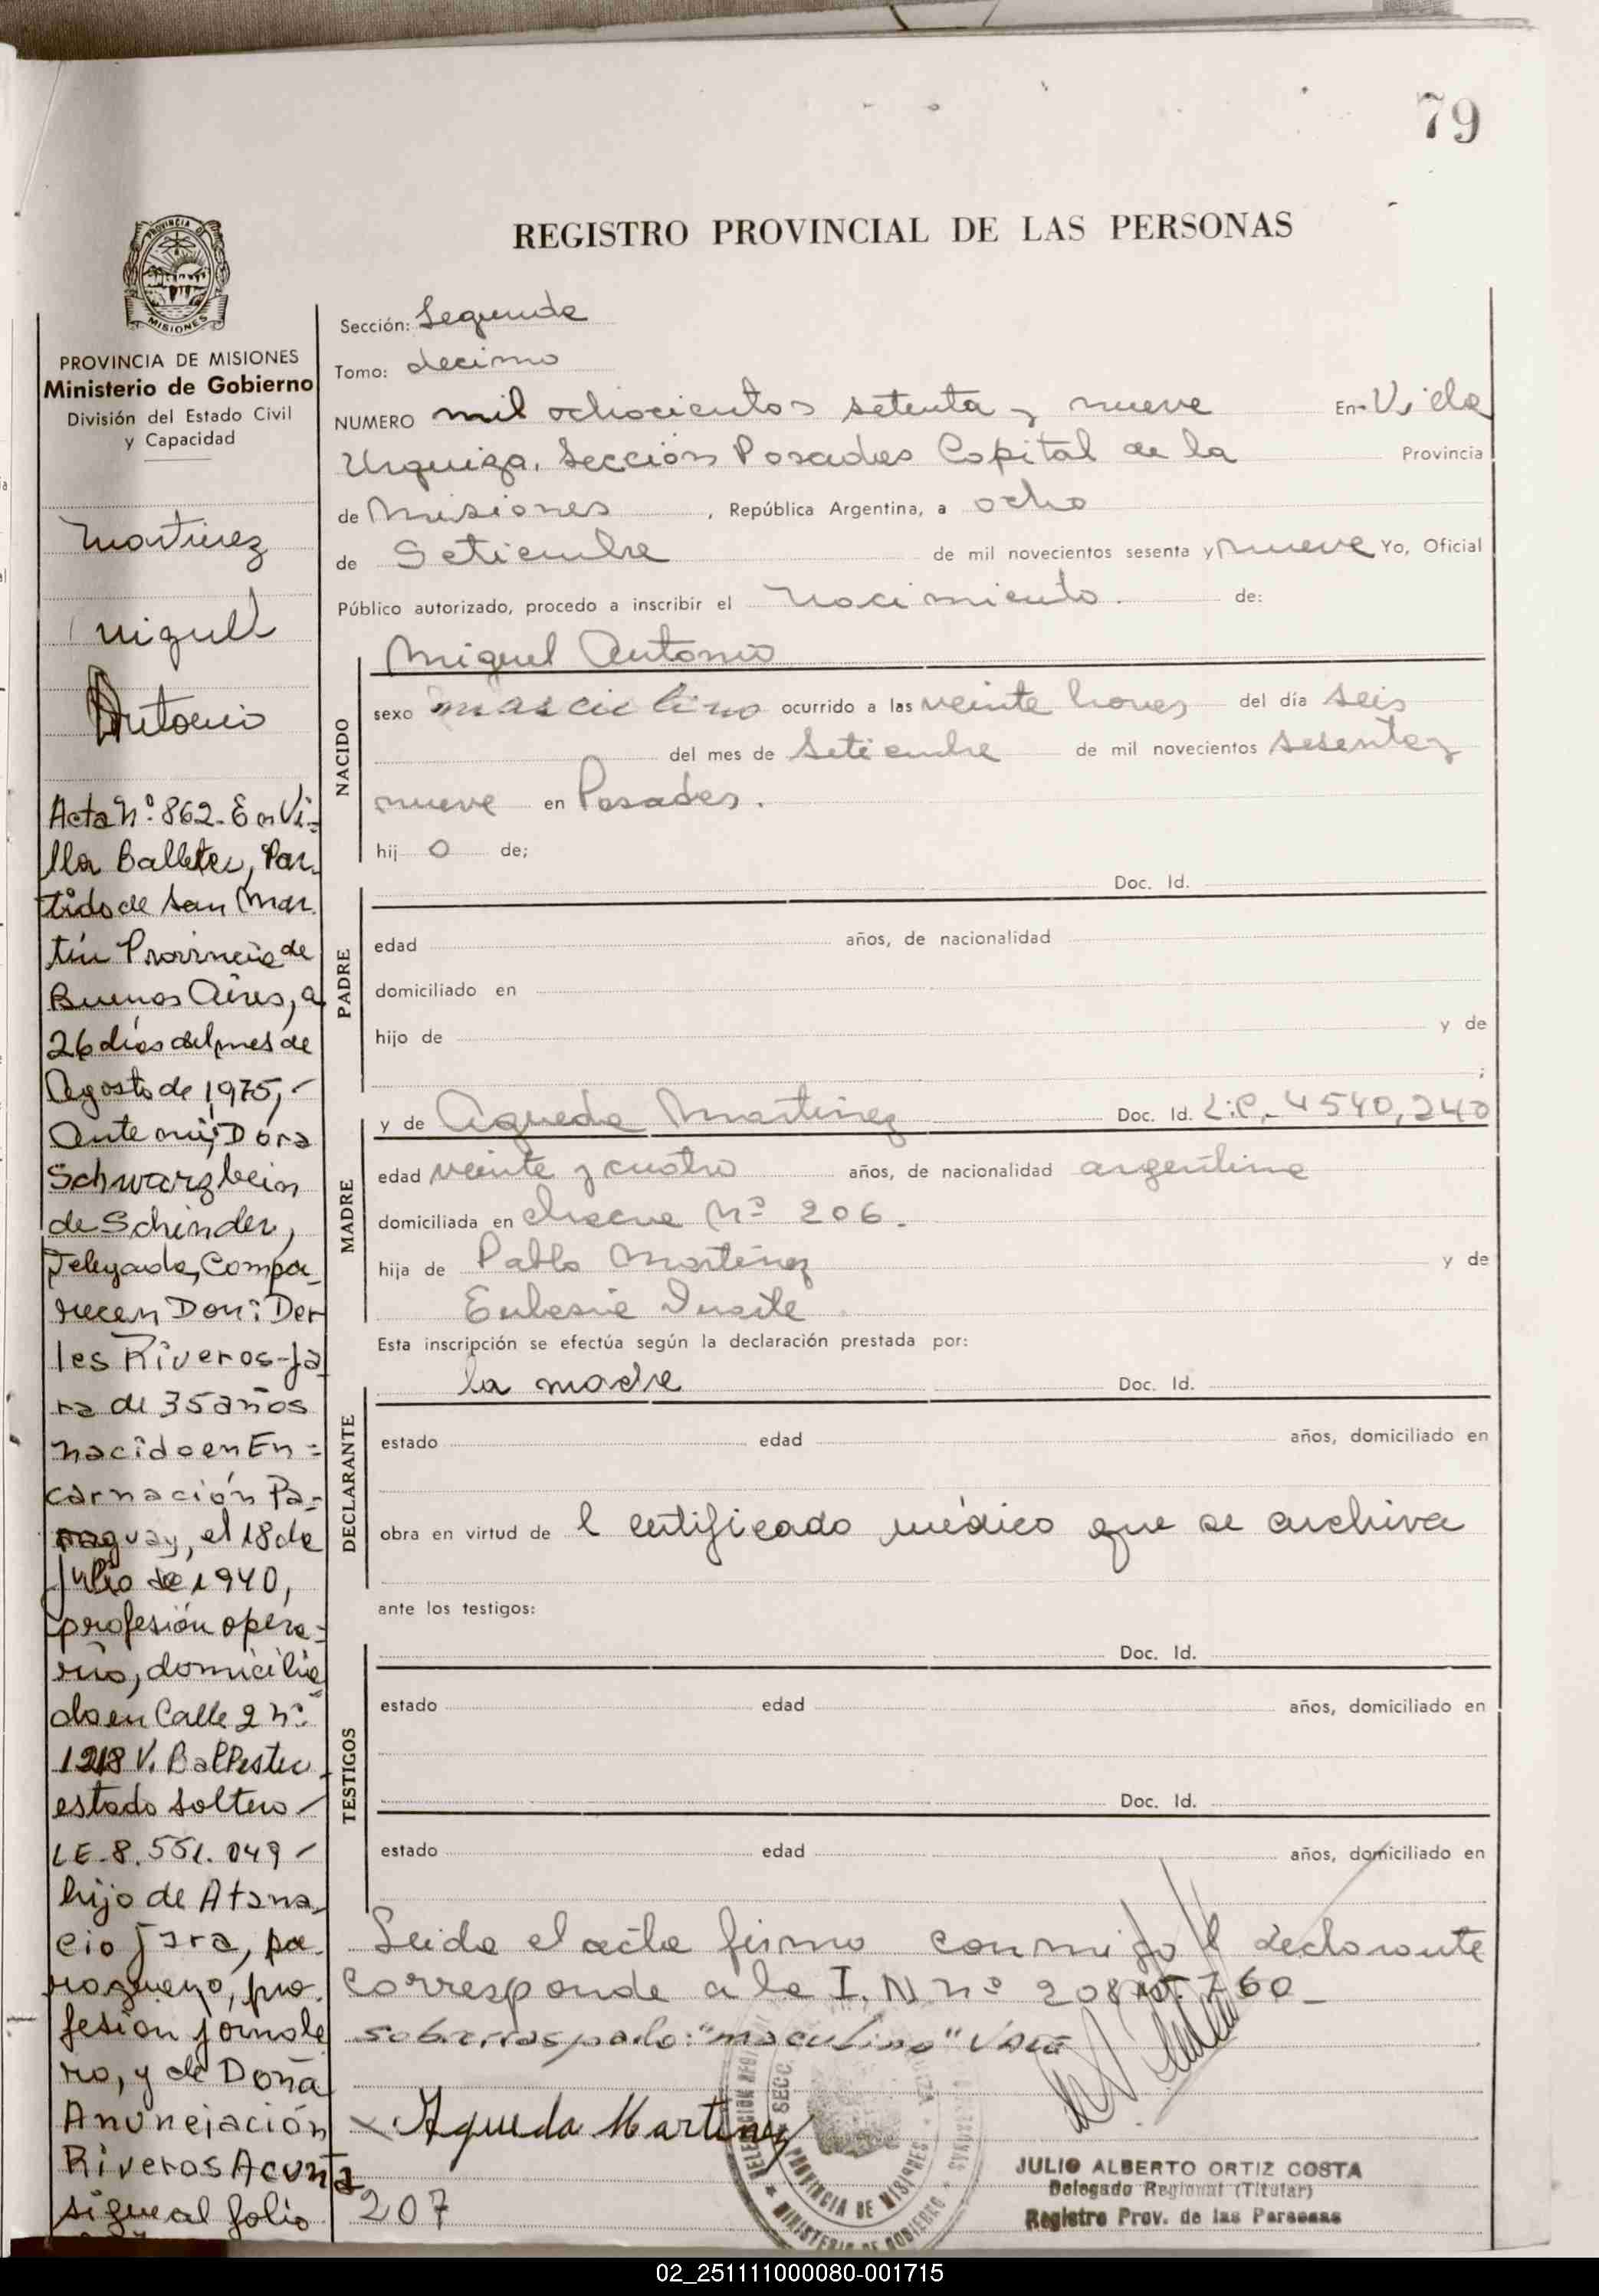 79
REGISTRO PROVINCIAL DE LAS PERSONAS
PROVINCIA DE MISIONES
Ministerio de Gobierno
División del Estado Civil
y Capacidad
Martinez
Miguel
Antonio
Acta Nº 862. En Vi=
lla Ballester, Par
tido de San Mar
tín Provincia de
Buenos Aires, a
26 días del mes de
Agosto de 1975,-
Ante mi; Dora
Schwarzbein
de Schinder,
Delegada, Compa-
recen Don: Der
les Riveros-Ja
ra de 35 años
nacido en En=
carnación Pa=
raguay, el 18 de
Julio de 1940,
profesión opera=
rio, domicilia
do en Calle 2 nº
1218 V. Ballester
estado soltero-
LE-8.551.049-
hijo de Atana
cio Jara, pa
raguayo, pro
fesión jornale
ro, y de Doña
Anunciación
Riveros Acuña
sigue al folio
207
Sección: Segunda
Tomo: decimo
NUMERO mil ochocientos setenta y nueve En Villa
Urquiza, Sección Posadas Capital de la Provincia
de Misiones, República Argentina, a ocho
de Setiembre de mil novecientos sesenta y nueve Yo, Oficial
Público autorizado, procedo a inscribir el Nacimiento. de:
Miguel Antonio
NACIDO
sexo masculino ocurrido a las veinte horas del día seis
del mes de Setiembre de mil novecientos sesenta y
nueve en Posadas.
hij o de;
Doc. Id.
PADRE
edad años, de nacionalidad
domiciliado en
hijo de y de
;
y de Agueda Martinez Doc. Id. L:C,- 4540,240
MADRE
edad veinte y cuatro años, de nacionalidad argentina
domiciliada en chacra Nº 206.
hija de Pablo Martínez y de
Esta inscripción se efectúa según la declaración prestada por:
la madre Doc. Id.
DECLARANTE
estado edad años, domiciliado en
obra en virtud de l certificado médico que se archiva
ante los testigos:
Doc. Id.
TESTIGOS
estado edad años, domiciliado en
Doc. Id.
estado edad años, domiciliado en
Leida el acta firma conmigo l declarante
Corresponde a la I. N nº 760
sobrerraspado: "masculino" Vale
Agueda Martinez
PROVINCIA DE MISIONES
MINISTERIO DE GOBIERNO
JULIO ALBERTO ORTIZ COSTA
Delegado Regional (Titular)
Registro Prov. de las Personas
02_251111000080-001715